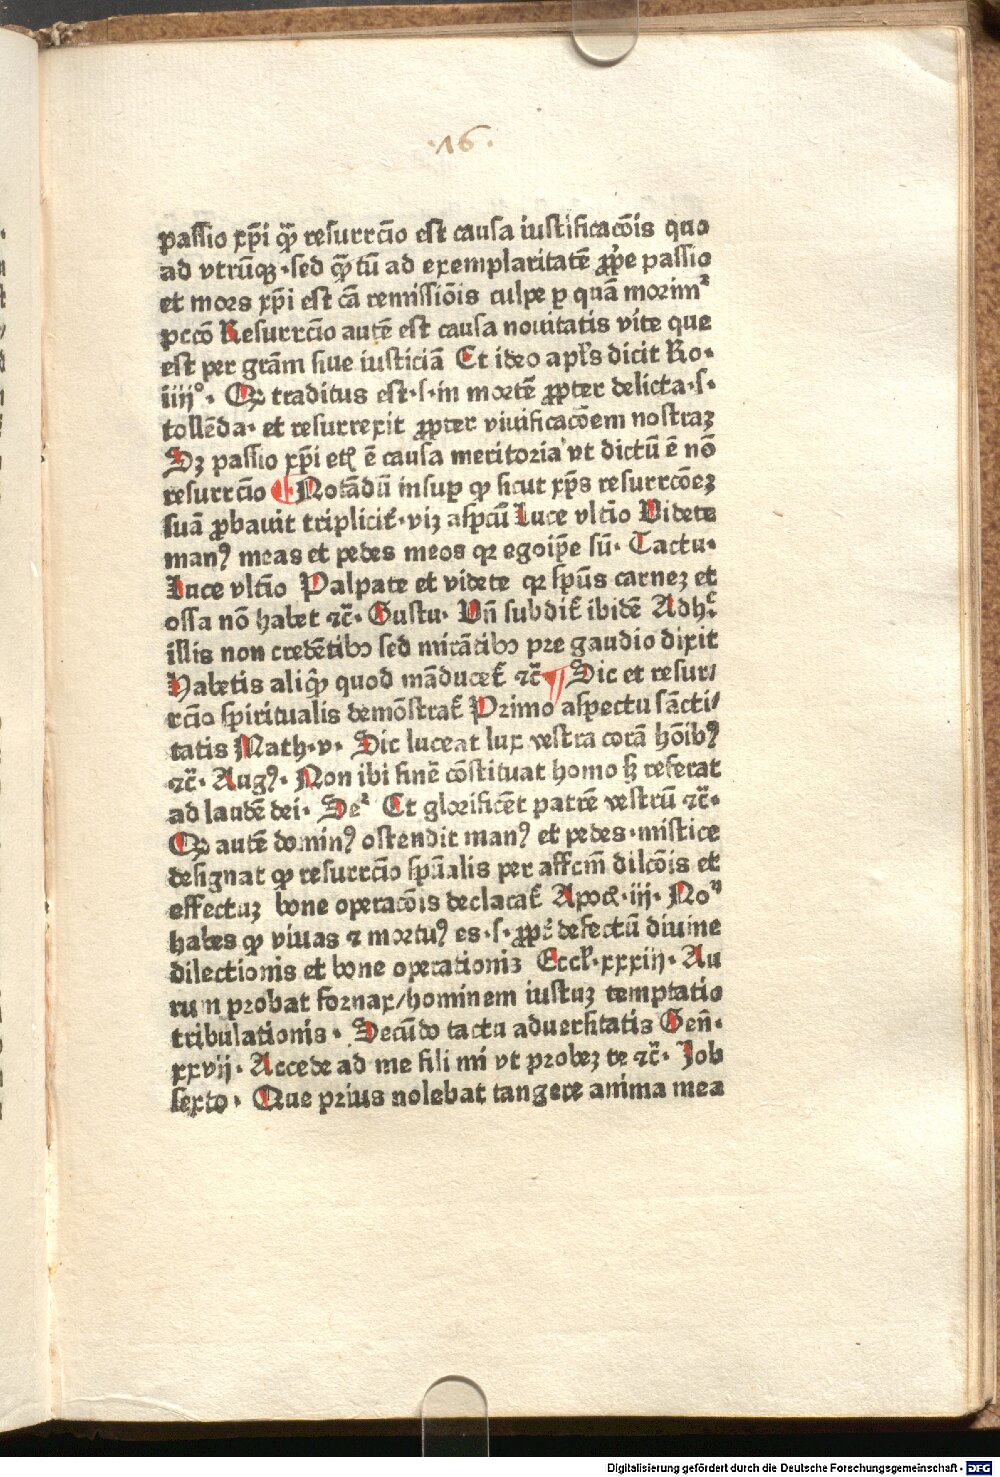 ·16·
passio xp̄i q̄ꝫ resurrc̄io est causa iustificac̄ois quo
ad vtrūqꝫ·sed q̄ꝫtū ad exemplaritatē ꝓp̄e passio
et mors xp̄i est cā remissiōis culpe ꝑ quā morimᷣ
pccō Resurrc̄io autē est causa nouitatis vite que
est per grām siue iusticiā Et ideo apl̄s dicit Ro·
iiijº· Qꝫ traditus est·s·in mortē ꝓpter delicta·s·
tollēda· et resurrexit ꝓpter viuificac̄oem nostraꝫ
Sꝫ passio xp̄i etꝭ ē causa meritoria vt dictū ē nō
resurrc̄io ¶ Notādū insuꝑ ꝙ sicut xp̄s resurrc̄oeꝫ
suā ꝓbauit triplicit̄·viꝫ aspc̄ū Luce vltīo Videte
manꝰ meas et pedes meos qꝛ egoip̄e sū· Tactu·
Luce vltīo Palpate et videte qꝛ sp̄us carneꝫ et
ossa nō habet ⁊c̄· Gustu· Vn̄ subdit̄ ibidē Adhᷣ
illis non credētibꝫ sed mirātibꝫ pre gaudio dixit
Habetis aliq̄ꝫ quod māducet̄ ⁊c̄ ¶ Sic et resur/
rc̄io spiritualis demōstrat̄ Primo aspectu sācti/
tatis Math·v· Sic luceat lux vestra corā hōibꝰ
⁊c̄· Augꝰ· Non ibi finē cōstituat homo sꝫ referat
ad laudē dei· Seᷣ Et glorificēt patrē vestrū ⁊c̄·
Qꝫ autē dominꝰ ostendit manꝰ et pedes·mistice
designat ꝙ resurrc̄io sp̄ualis per affcm̄ dilc̄ois et
effectuꝫ bone operac̄ois declarat̄ Apocꝭ·iij· Noᷠ
habes ꝙ viuas ⁊ mortuꝰ es·s·ꝓpt̄ defectū diuine
dilectionis et bone operationis Eccl̄·xxxiij· Au
rum probat fornax/hominem iustuꝫ temptatio
tribulationis· Secūdo tactu aduersitatis Gen̄·
xxvij· Accede ad me fili mi vt probeꝫ te ⁊c̄· Job
sexto· Que prius nolebat tangere anima mea
Digitalisierung gefördert durch die Deutsche Forschungsgemeinschaft - DFG